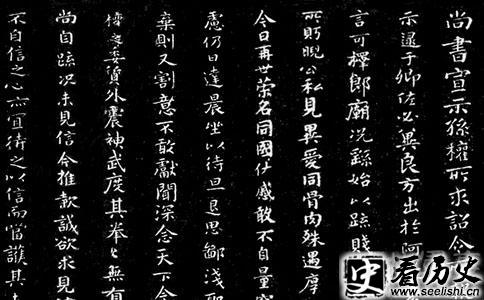 尚書宣示孫權所求詔令
示逮于卿佐必冀良方出於阿
言可擇郎廟況繇始以疏賤
所眄睨公私見異愛同骨肉殊遇厚
今日再世榮名同國休慼敢不自量竊
慮仍日達晨坐以待旦退思鄙淺聖
棄則又割意不敢獻聞深念天下今
權之委質外震神武度其拳拳無有
尚自疏況未見信今推款誠欲求見
不自信之心亦宜待之以信而當護其未
史
看历史
www.seelishi.cn